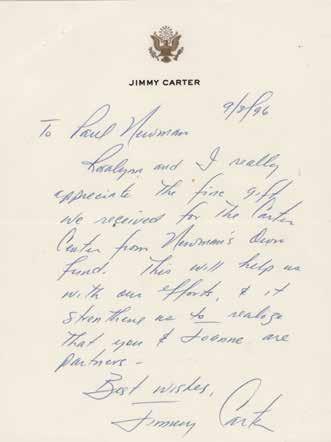 JIMMY CARTER
9/8/96
To Paul Newman
Rosalynn and I really
appreciate the fine gift
we received for The Carter
Center from Newman's Own
fund. This will help us
with our efforts, & it
strengthens us to realize
that you & Joanne are
partners -
Best wishes,
Jimmy Carter